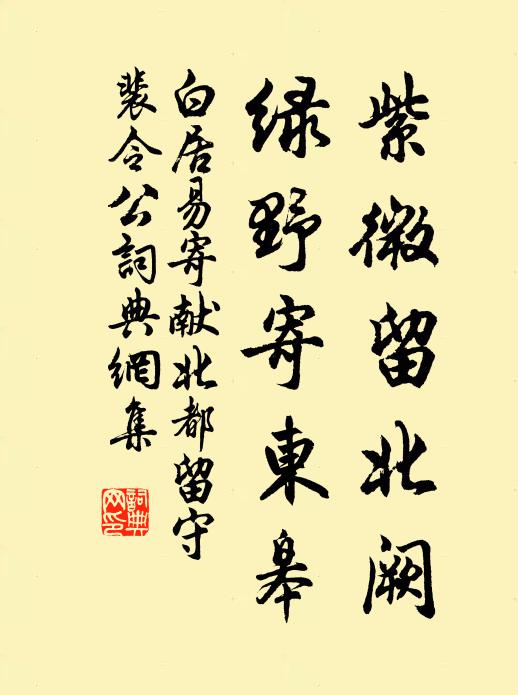 紫微留北阙
绿野寄東皋
白居易寄献北都留守
裴令公詞典網集
詞典网印